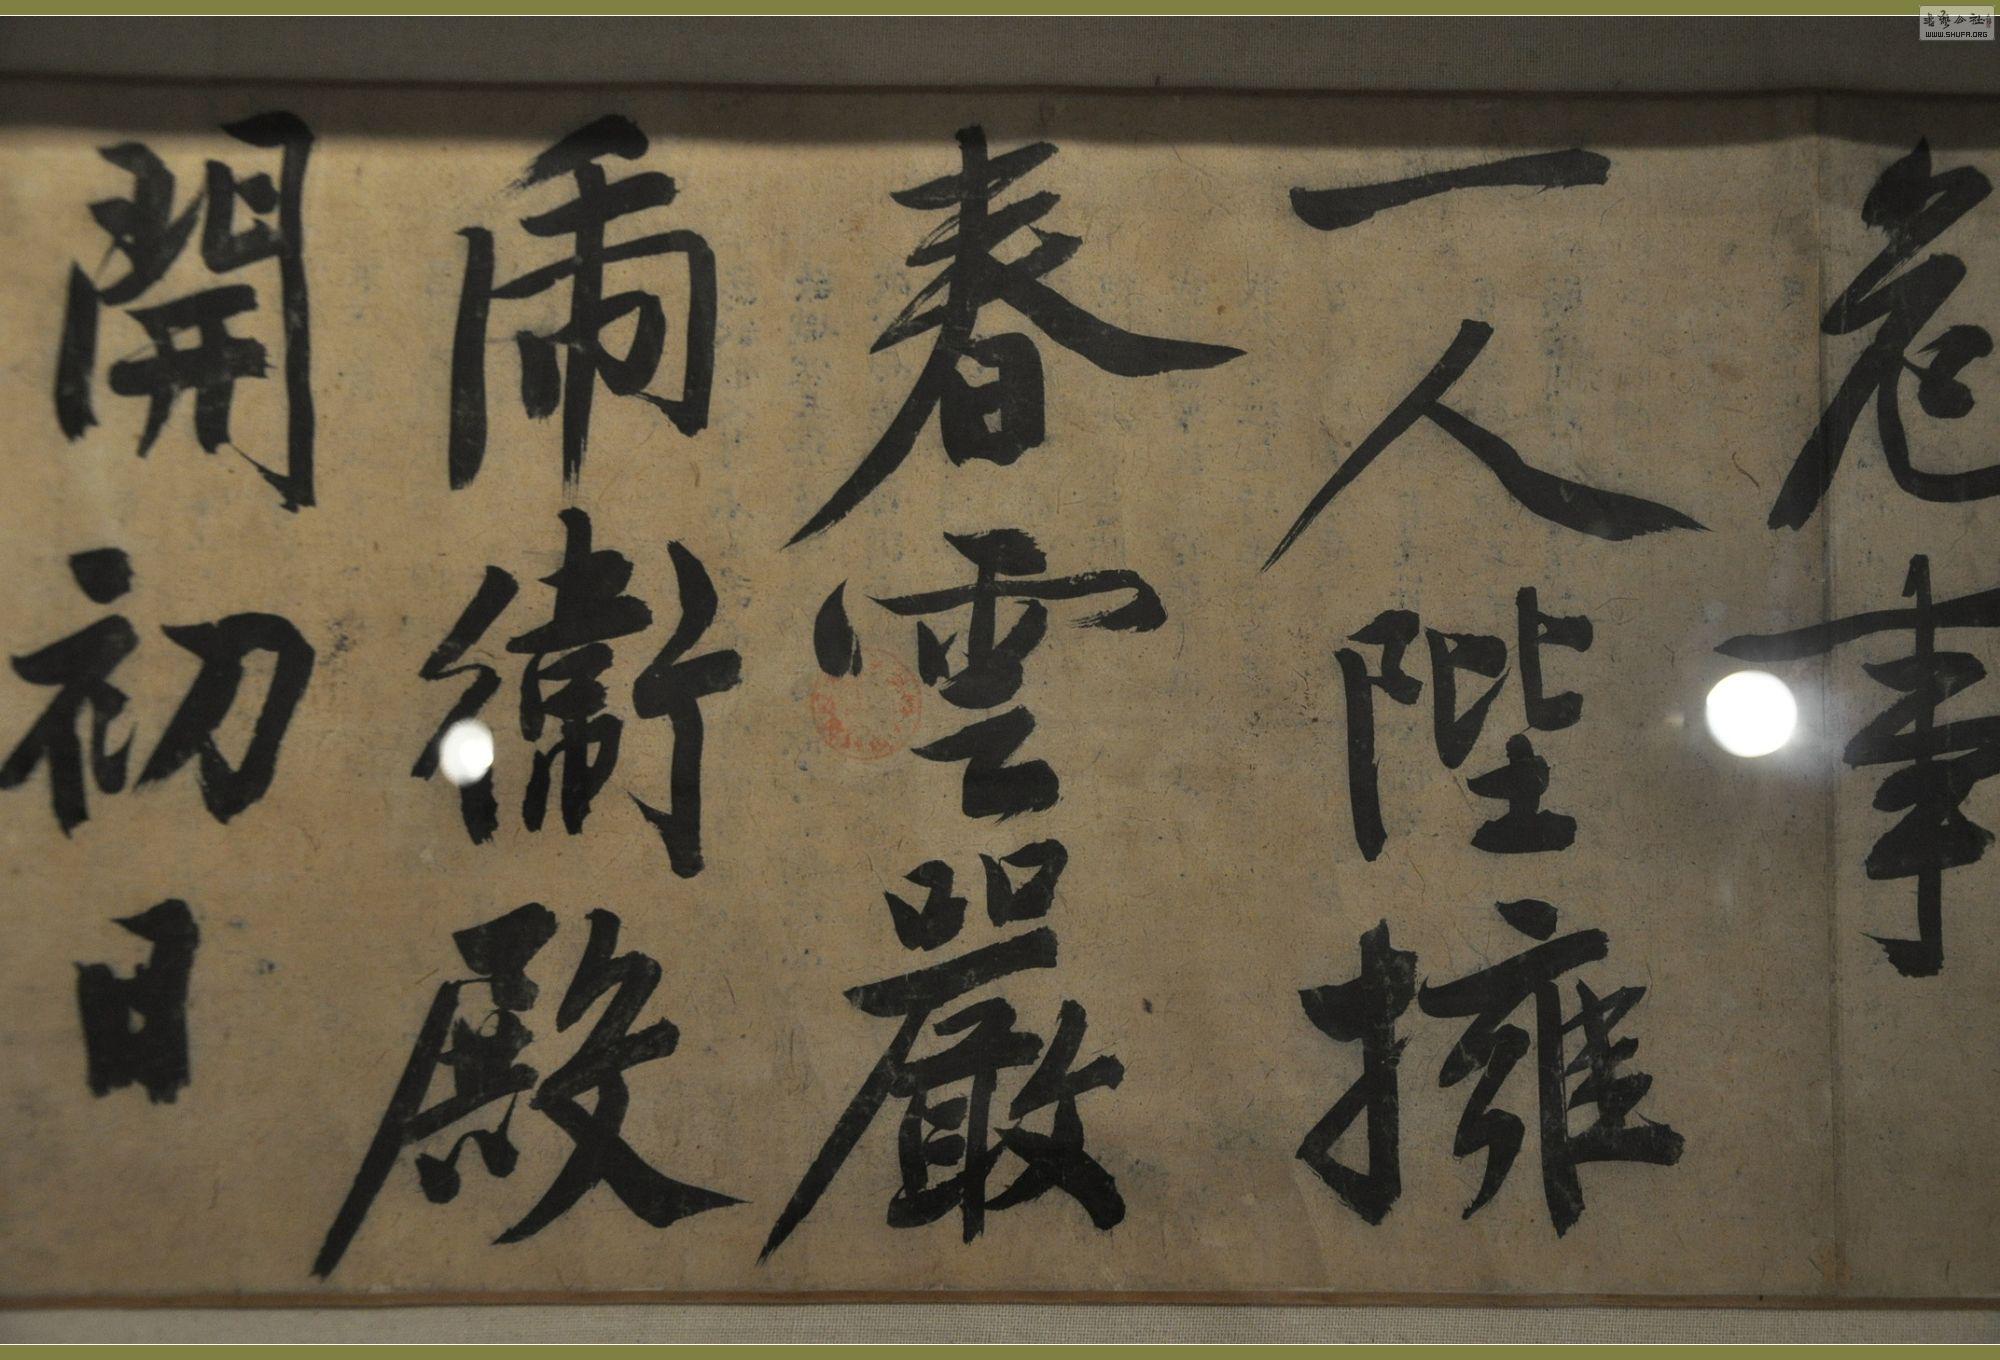 危事
一人陛擁
春雲嚴
兩衛殿
開初日
書藝公社
WWW.SHUFA.ORG